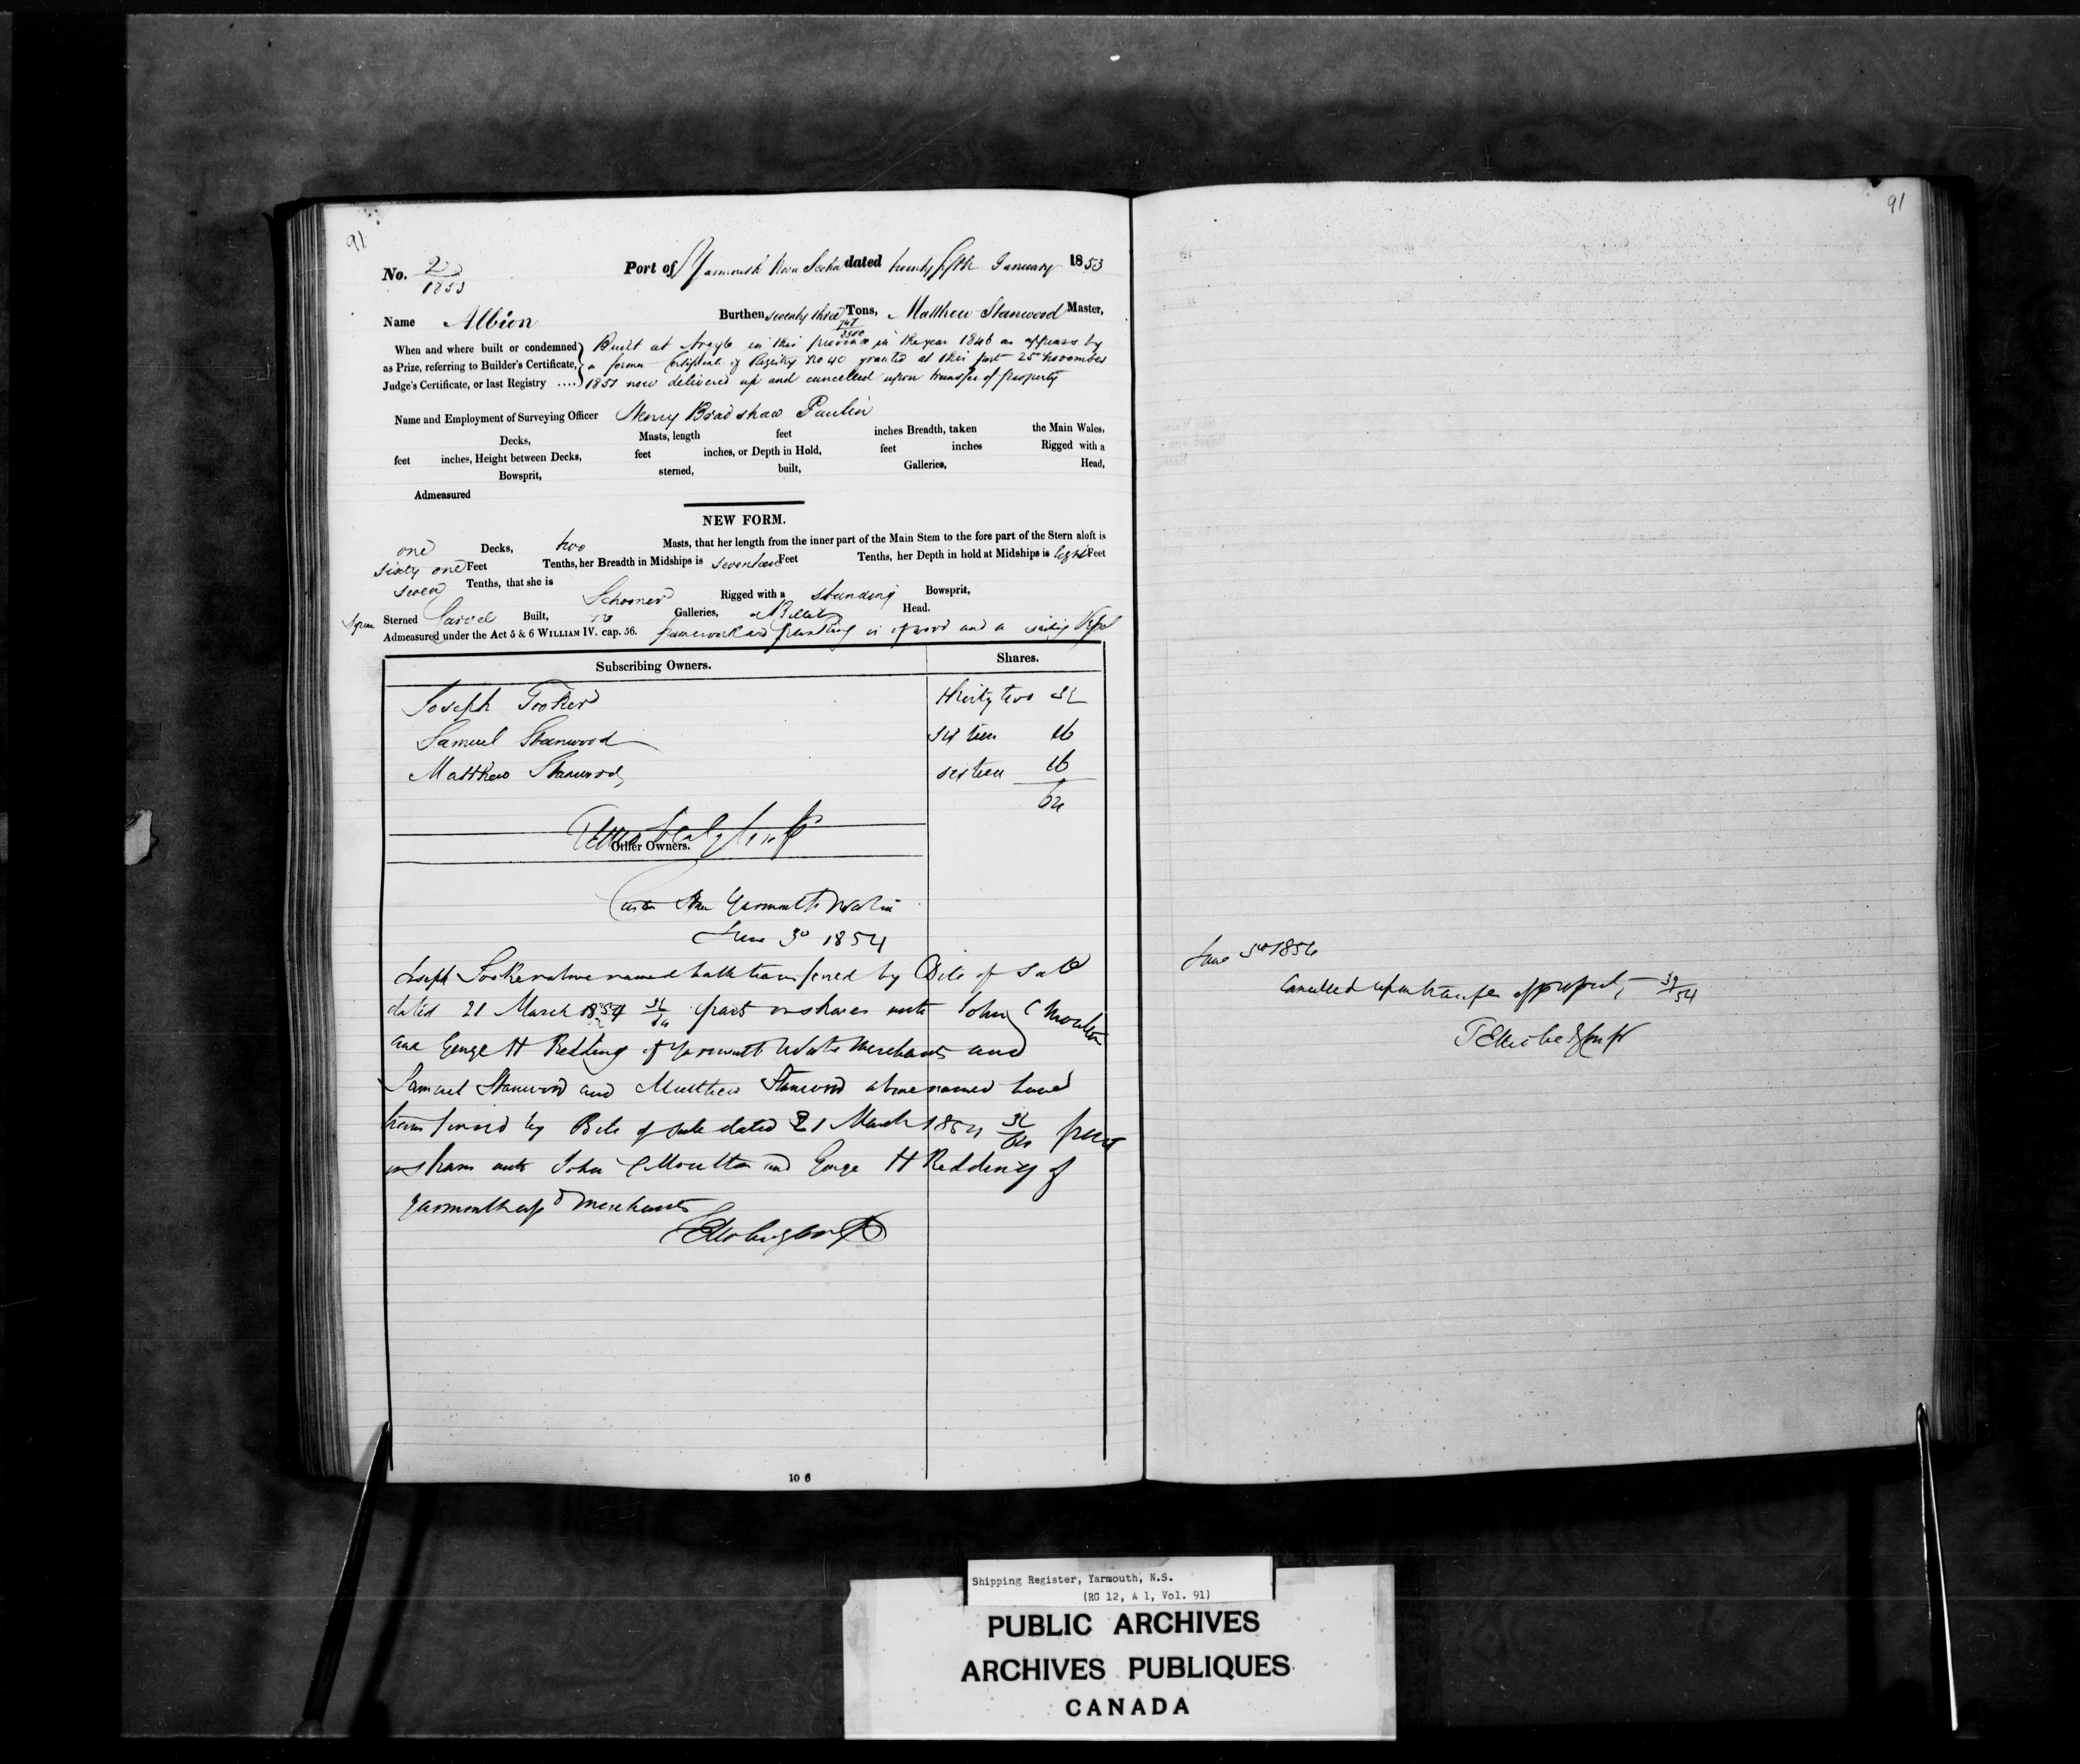 91
No. 2/1853 Port of Yarmouth Nova Scotia dated twenty fifth January 1853
Name Albion Burthen seventy three Tons, Matthew Stanwood Master,
When and where built or condemned Built at Argyle in this province in the year 1846 as appears by
as Prize, referring to Builder's Certificate, a former Certificate of Registry No 40 granted at this port 25 November
Judge's Certificate, or last Registry .... 1851 now delivered up and cancelled upon transfer of property
Name and Employment of Surveying Officer Henry Bradshaw Paulin
Decks, Masts, length feet inches Breadth, taken the Main Wales,
feet inches, Height between Decks, feet inches, or Depth in Hold, feet inches Rigged with a
Bowsprit, sterned, built, Galleries, Head,
Admeasured
NEW FORM.
one Decks, two Masts, that her length from the inner part of the Main Stem to the fore part of the Stern aloft is
sixty one Feet Tenths, her Breadth in Midships is seventeen Feet Tenths, her Depth in hold at Midships is eight Feet
seven Tenths, that she is Schooner Rigged with a standing Bowsprit,
Square Sterned Carvel Built, no Galleries, a Billet Head.
Admeasured under the Act 5 & 6 WILLIAM IV. cap. 56. framework and planking is of wood and a sailing Vessel
Subscribing Owners. Shares.
Joseph Tooker thirty two 32
Samuel Stanwood sixteen 16
Matthew Stanwood sixteen 16
64
Other Owners.
Custom House Yarmouth
June 3d 1854
Joseph Tooker above named hath transferred by Bill of Sale
dated 21 March 1854 32/64 parts or shares unto John C Moulton
and George H Redding of Yarmouth Merchants and
Samuel Stanwood and Matthew Stanwood above named have
transferred by Bill of Sale dated 21 March 1854 32/64 parts
or shares unto John C Moulton and George H Redding of
Yarmouth afsd Merchants
91
June 3rd 185
Cancelled upon transfer of property 39/54
10 6
Shipping Register, Yarmouth, N.S.
(RG 12, A 1, Vol. 91)
PUBLIC ARCHIVES
ARCHIVES PUBLIQUES
CANADA